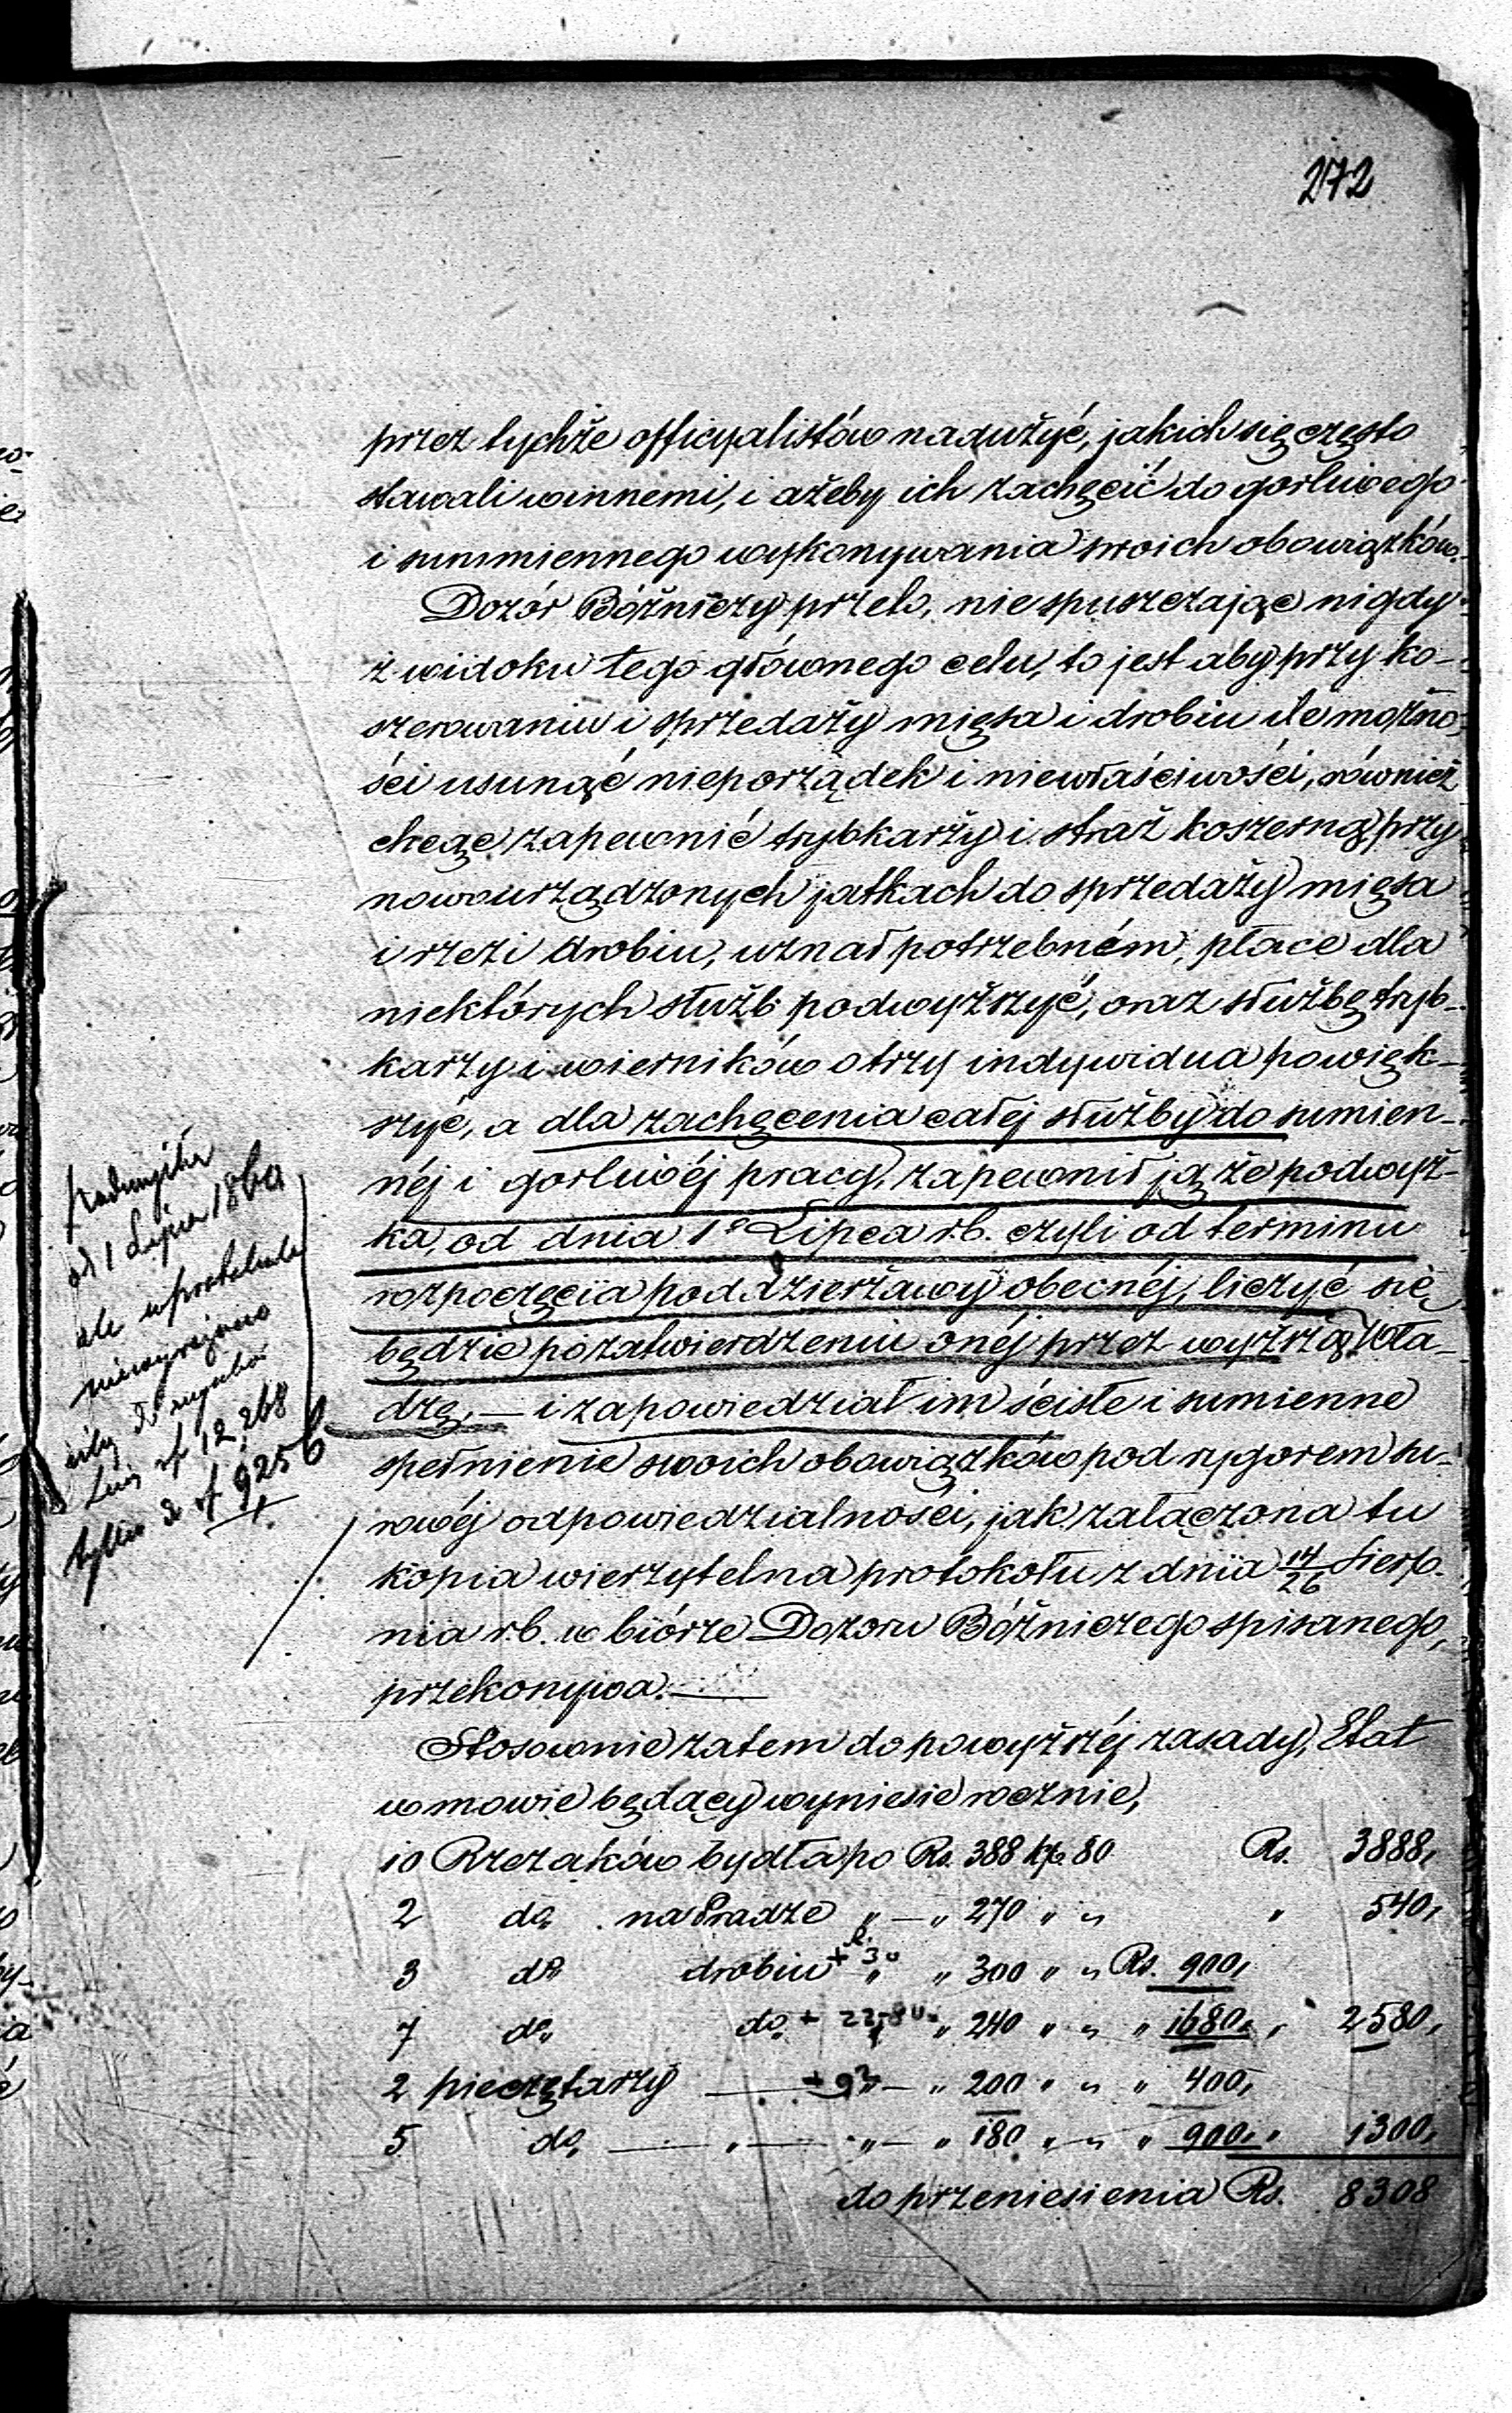 272
przez tychże officyalistów nadużyć, jakich się często
stawali winnemi, i ażeby ich zachęcić do gorliwego
i summiennego wykonywania swoich obowiązków.
Dozór Bóżniczy przeto, nie spuszczając nigdy
z widoku tego głównego celu, to jest aby przy ko-
szerowaniu i sprzedaży mięsa i drobiu ile możno-
ści usunąć nieporządek i niewłaściwości, również
chcąc zapewnić trybkarży i straż koszerną przy
nowourządzonych jatkach do sprzedaży mięsa
i rzezi drobiu, uznał potrzebném, płace dla
niektórych służb podwyższyć, oraz służbę tryb-
karzy i wierników o trzy indywidua powięk-
szyć, a dla zachęcenia całej służby do sumien-
néj i gorliwéj pracy, zapewnił ją że podwyż-
ka, od dnia 1o Lipca r.b. czyli od terminu
rozpoczęcia poddzierżawy obecnéj, liczyć się
będzie po zatwierdzeniu onéj przez wyższą Wła-
dzę, — i zapowiedział im ścisłe i sumienne
spełnienie swoich obowiązków pod rygorem su-
rowéj odpowiedzialności, jak załączona tu
kopia wierzytelna protokołu z dnia 14/26 Sierp-
nia r.b. w biórze Dozoru Bóżniczego spisanego,
przekonywa. —
Stosownie zatem do powyższéj zasady, Etat
w mowie będący wyniesie rocznie,
10 Rzezaków bydła po Rs. 388 kp. 80 Rs. 3888,
2 do. na Pradze „ — „ 270 „ „ „ 540,
3 do. drobiu + 30 „ „ 300 „ „ Rs. 900,
7 do. do. + 22,80 „ 240 „ „ „ 1680, „ 2580,
2 pieczętarzy — „ — „ 200 „ „ „ 400,
5 do. — „ — „ — „ 180 „ „ „ 900, „ 1300,
do przeniesienia Rs. 8308
od 1 Lipca 1860
ale w protokule
12,268
tylko 9256